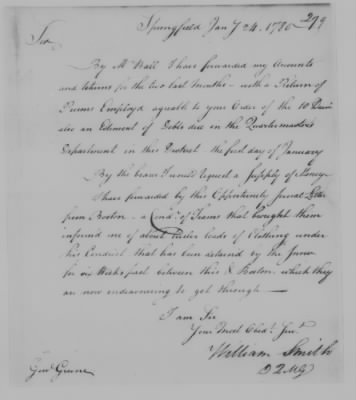 Springfield Jany 24. 1780
299
Sir
By Mr Wait I have forwarded my Accounts
and returns for the two last Months – with a Return of
Persons Employd agreable to your Order of the 10 Decr
also an Estiment of Debts due in the Quartermasters
Department in this District the first day of January
By the bearer I must request a supply of Money
I have forwarded by this Oppertunity several Letters
from Boston – a Condr of Teams that brought them
informd me of about loads of Clothing under
his Conduct that has been detaind by the Snow
for six Weeks past between this & Boston. which they
are now endeavouring to get through —
I am Sir
Your Most Obedt Servt
William Smith
DQMG
Genl Greene